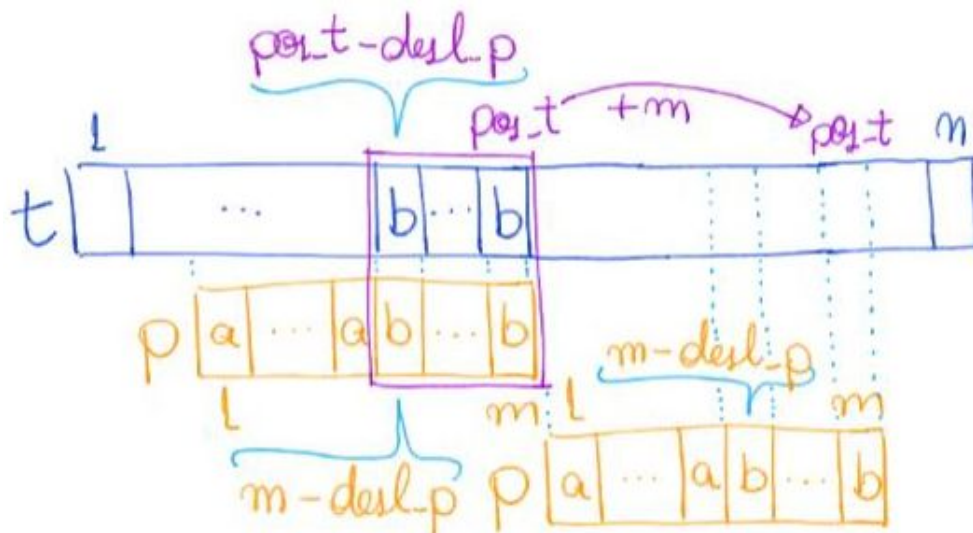 pos_t-desl_p
1 pos_t +m pos_t n
t ... b ... b
p a ... a b ... b
m-desl_p
1 m 1 m
m-desl_p p a ... a b ... b